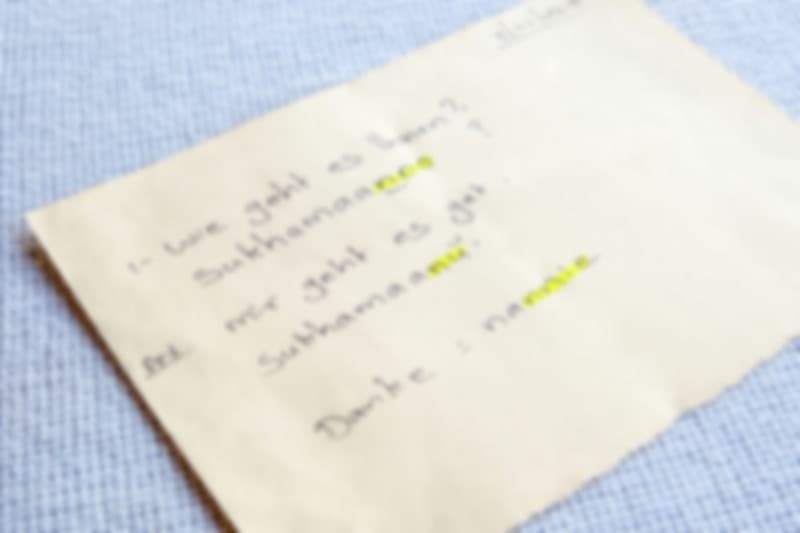 1- wie geht es Ihnen?
Sukhamaanno ?
mir geht es gut.
Sukhamaanu.
Danke :